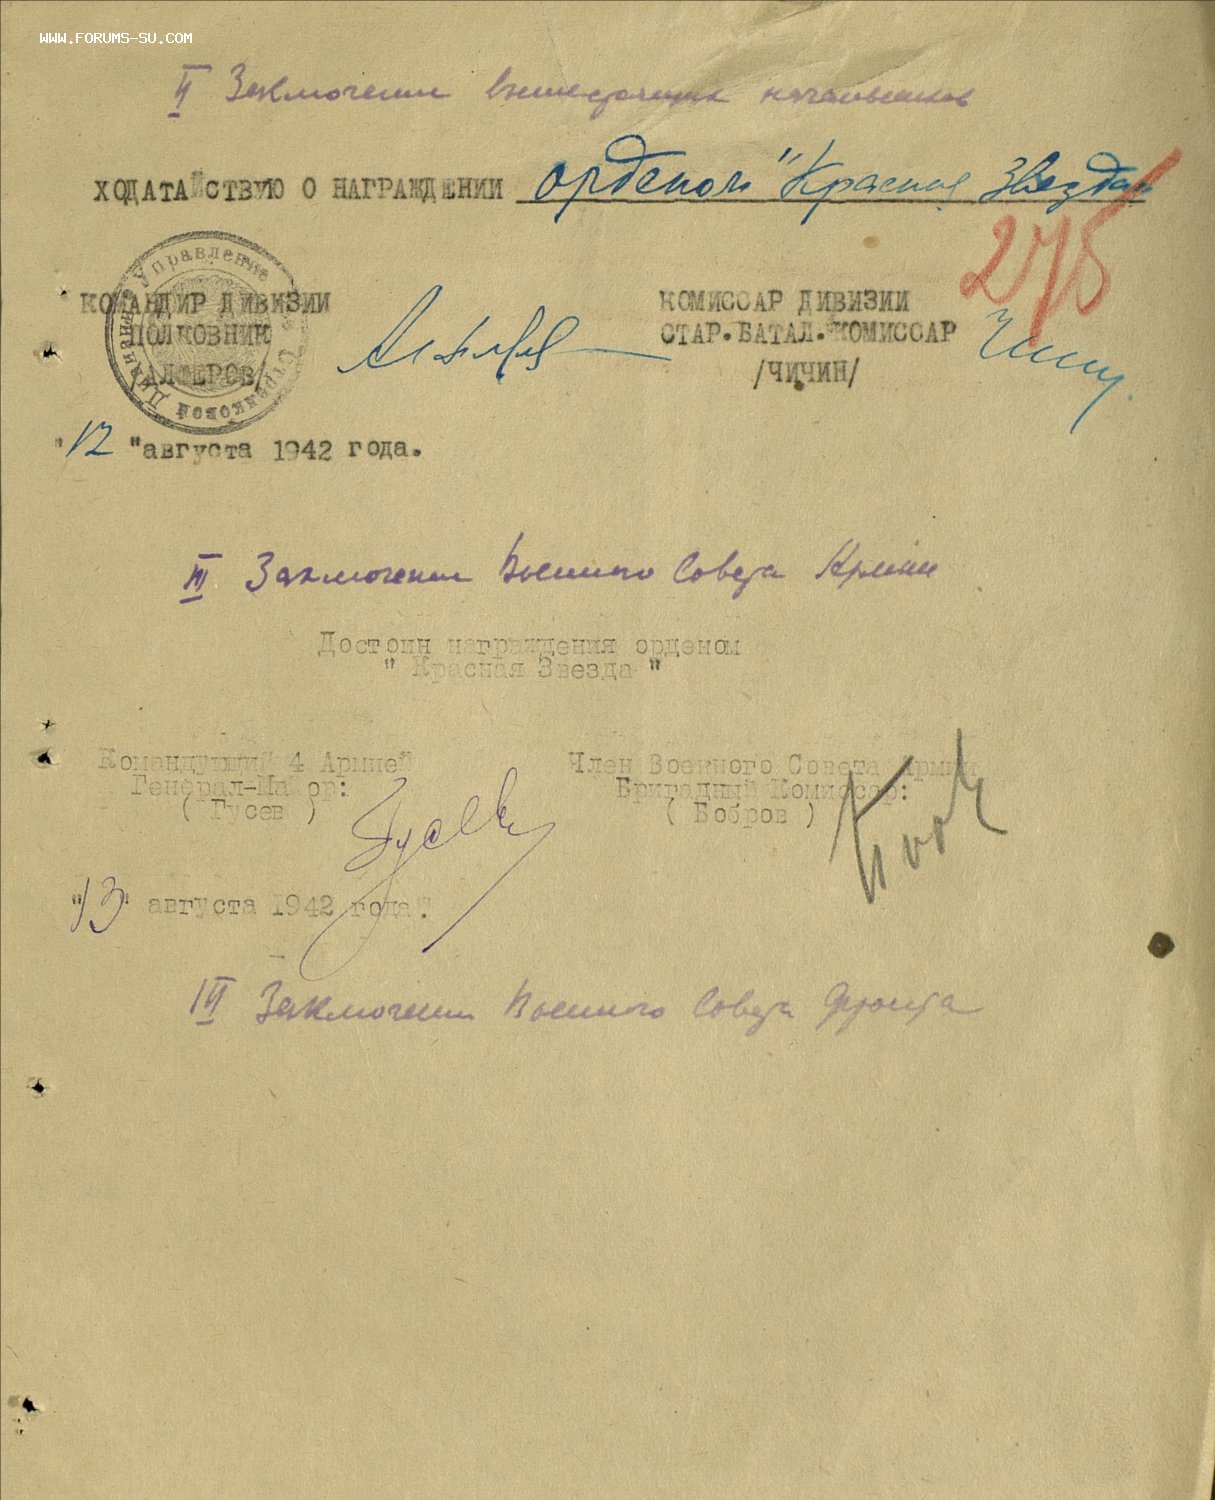 WWW.FORUMS-SU.COM
II Заключение вышестоящих начальников
ХОДАТАЙСТВУЮ О НАГРАЖДЕНИИ орденом "Красная Звезда"
275
Управление Стрелковой Дивизии
КОМАНДИР ДИВИЗИИ
ПОЛКОВНИК
/АЛФЕРОВ/
КОМИССАР ДИВИЗИИ
СТАР.БАТАЛ.КОМИССАР
/ЧИЧИН/
"12"августа 1942 года.
III Заключение Военного Совета Армии
Достоин награждения орденом
" Красная Звезда "
Командующий 4 Армией
Генерал-Майор:
( Гусев )
Гусев
Член Военного Совета Армии
Бригадный Комиссар:
( Бобров )
"13" августа 1942 года.
IV Заключение Военного Совета Фронта